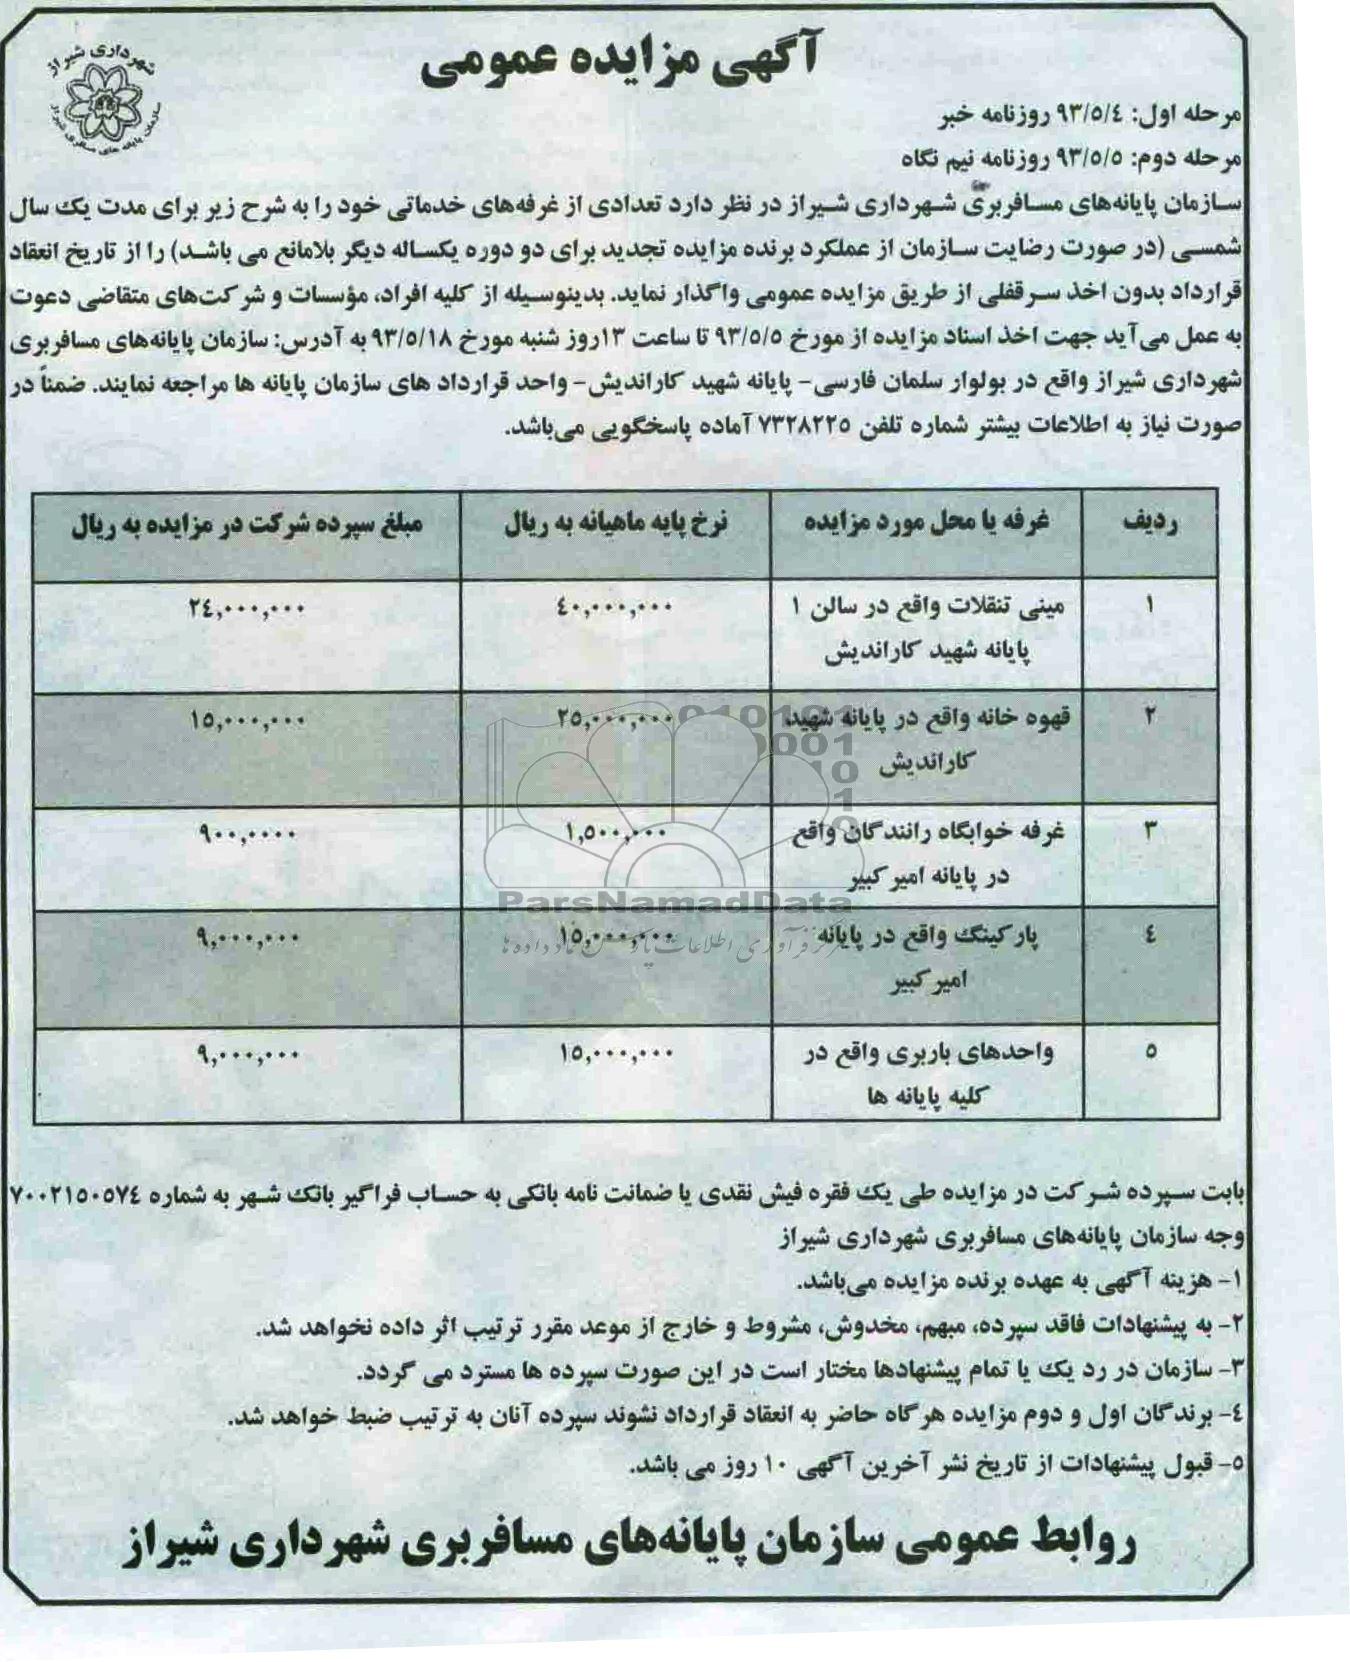 آگهی مزایده عمومی
شهرداری شیراز
سازمان پایانه های مسافربری شیراز
مرحله اول: ۹۳/۵/٤ روزنامه خبر
مرحله دوم: ۹۳/۵/۵ روزنامه نیم نگاه
سازمان پایانه‌های مسافربری شهرداری شیراز در نظر دارد تعدادی از غرفه‌های خدماتی خود را به شرح زیر برای مدت یک سال
شمسی (در صورت رضایت سازمان از عملکرد برنده مزایده تجدید برای دو دوره یکساله دیگر بلامانع می باشد) را از تاریخ انعقاد
قرارداد بدون اخذ سرقفلی از طریق مزایده عمومی واگذار نماید. بدینوسیله از کلیه افراد، مؤسسات و شرکت‌های متقاضی دعوت
به عمل می‌آید جهت اخذ اسناد مزایده از مورخ ۹۳/۵/۵ تا ساعت ۱۳روز شنبه مورخ ۹۳/۵/۱۸ به آدرس: سازمان پایانه‌های مسافربری
شهرداری شیراز واقع در بولوار سلمان فارسی- پایانه شهید کاراندیش- واحد قرارداد های سازمان پایانه ها مراجعه نمایند. ضمناً در
صورت نیاز به اطلاعات بیشتر شماره تلفن ۷۳۲۸۲۲۵ آماده پاسخگویی می‌باشد.
ردیف غرفه یا محل مورد مزایده نرخ پایه ماهیانه به ریال مبلغ سپرده شرکت در مزایده به ریال
۱ مینی تنقلات واقع در سالن ۱ ٤۰,۰۰۰,۰۰۰ ۲٤,۰۰۰,۰۰۰
پایانه شهید کاراندیش
۲ قهوه خانه واقع در پایانه شهید ۲۵,۰۰۰,۰۰۰ ۱۵,۰۰۰,۰۰۰
کاراندیش
۳ غرفه خوابگاه رانندگان واقع ۱,۵۰۰,۰۰۰ ۹۰۰,۰۰۰۰
در پایانه امیرکبیر
٤ پارکینگ واقع در پایانه ۱۵,۰۰۰,۰۰۰ ۹,۰۰۰,۰۰۰
امیرکبیر
۵ واحدهای باربری واقع در ۱۵,۰۰۰,۰۰۰ ۹,۰۰۰,۰۰۰
کلیه پایانه ها
ParsNamadData
بابت سپرده شرکت در مزایده طی یک فقره فیش نقدی یا ضمانت نامه بانکی به حساب فراگیر بانک شهر به شماره ۷۰۰۲۱۵۰۵۷٤
وجه سازمان پایانه‌های مسافربری شهرداری شیراز
۱- هزینه آگهی به عهده برنده مزایده می‌باشد.
۲- به پیشنهادات فاقد سپرده، مبهم، مخدوش، مشروط و خارج از موعد مقرر ترتیب اثر داده نخواهد شد.
۳- سازمان در رد یک یا تمام پیشنهادها مختار است در این صورت سپرده ها مسترد می گردد.
٤- برندگان اول و دوم مزایده هرگاه حاضر به انعقاد قرارداد نشوند سپرده آنان به ترتیب ضبط خواهد شد.
۵- قبول پیشنهادات از تاریخ نشر آخرین آگهی ۱۰ روز می باشد.
روابط عمومی سازمان پایانه‌های مسافربری شهرداری شیراز